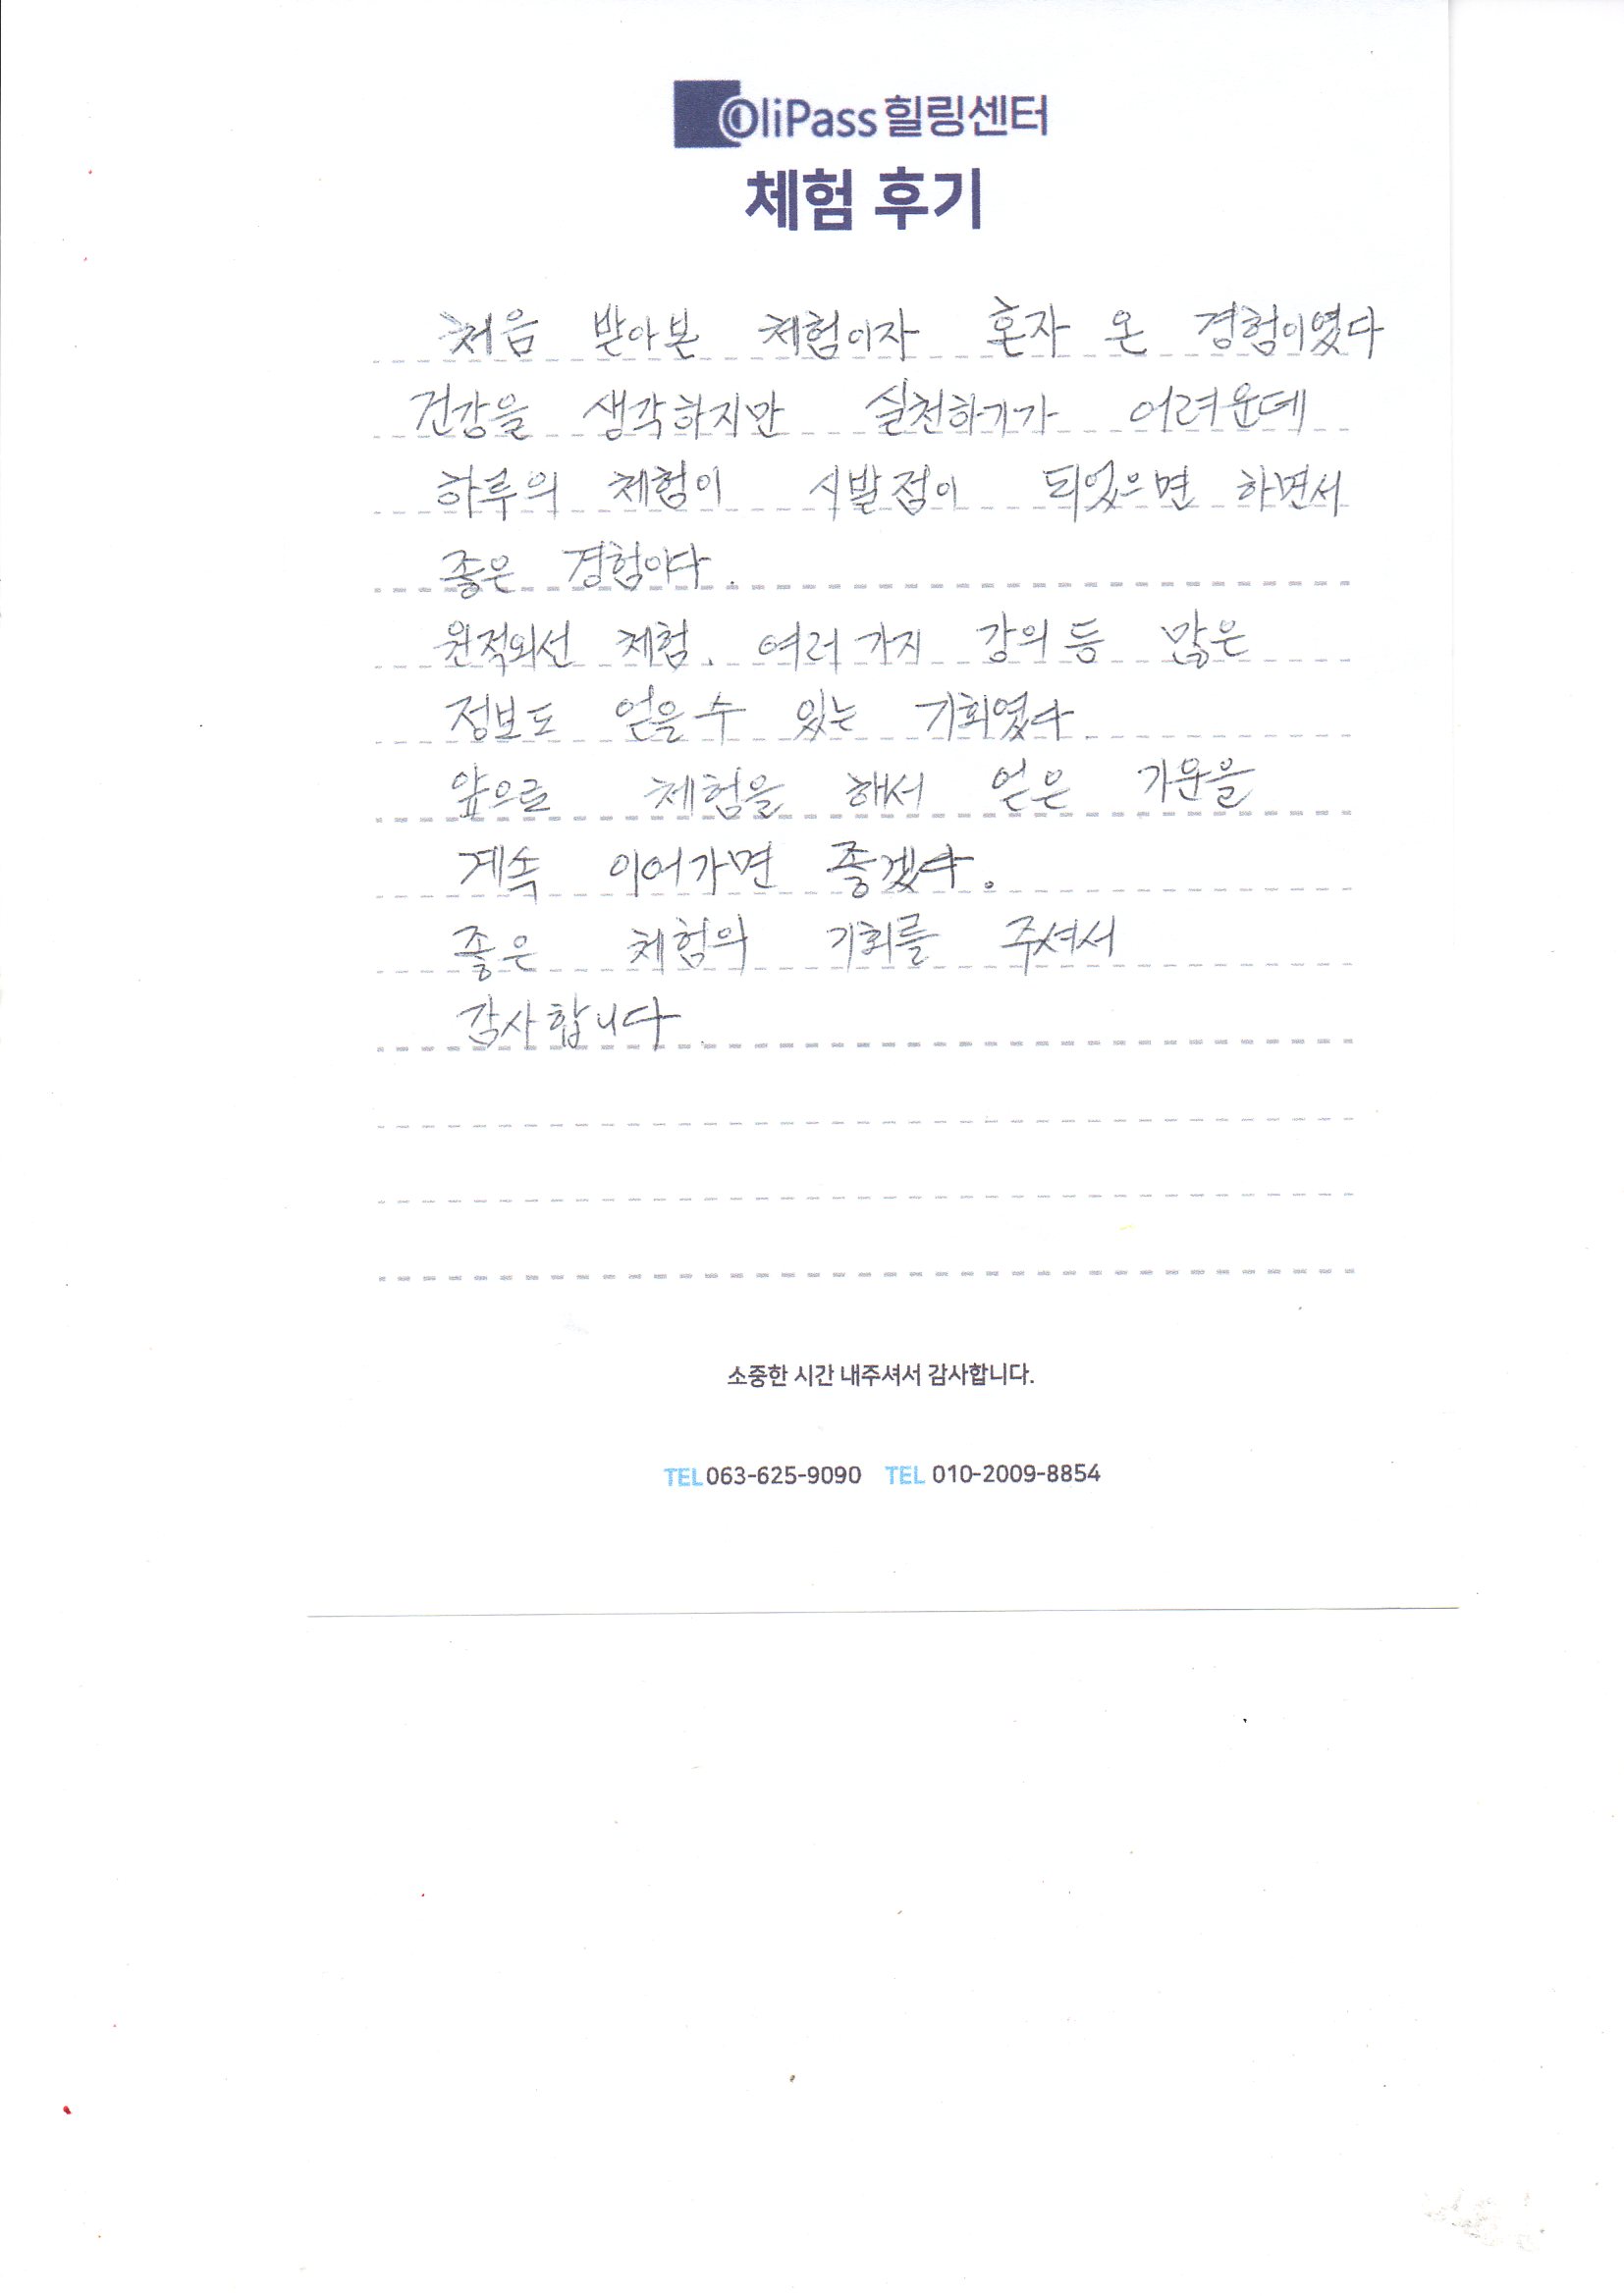 OliPass 힐링센터
체험 후기
처음 받아본 체험이자 혼자 온 경험이였다
건강을 생각하지만 실천하기가 어려운데
하루의 체험이 시발점이 되었으면 하면서
좋은 경험이다.
원적외선 체험. 여러가지 강의 등 많은
정보도 얻을 수 있는 기회였다.
앞으로 체험을 해서 얻은 기운을
계속 이어가면 좋겠다.
좋은 체험의 기회를 주셔서
감사합니다.
소중한 시간 내주셔서 감사합니다.
TEL 063-625-9090 TEL 010-2009-8854